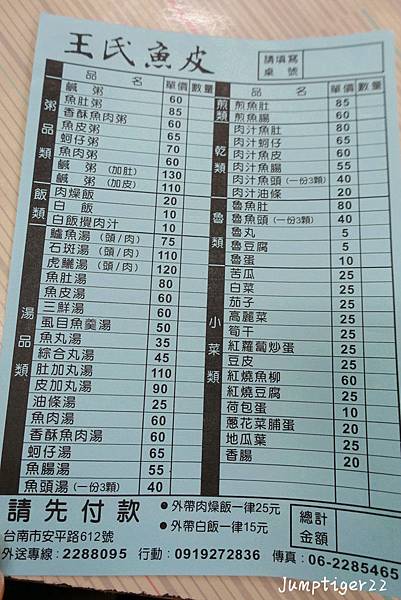 王氏魚皮
請填寫
桌號
品名 單價 數量
粥品類
鹹粥 60
魚肚粥 60
香酥魚肉粥 85
魚皮粥 60
蚵仔粥 65
魚肉粥 70
鹹粥 60
鹹粥(加肚) 130
鹹粥(加皮) 110
飯類
肉燥飯 20
白飯 10
白飯攪肉汁 10
湯品類
鱸魚湯(頭/肉) 75
石斑湯(頭/肉) 110
虎鱺湯(頭/肉) 120
魚肚湯 80
魚皮湯 60
三鮮湯 60
虱目魚羹湯 50
魚丸湯 35
綜合丸湯 45
肚加丸湯 110
皮加丸湯 90
油條湯 25
魚肉湯 60
香酥魚肉湯 60
蚵仔湯 65
魚腸湯 55
魚頭湯(一份3顆) 40
品名 單價 數量
煎類
煎魚肚 85
煎魚腸 60
乾類
肉汁魚肚 80
肉汁蚵仔 65
肉汁魚皮 60
肉汁魚腸 55
肉汁魚頭(一份3顆) 40
肉汁油條 20
魯類
魯魚肚 80
魯魚頭(一份3顆) 40
魯丸 5
魯豆腐 5
魯蛋 10
小菜類
苦瓜 25
白菜 25
茄子 25
高麗菜 25
筍干 25
紅蘿蔔炒蛋 25
豆皮 25
紅燒魚柳 60
紅燒豆腐 25
荷包蛋 10
蔥花菜脯蛋 20
地瓜葉 25
香腸 20
請先付款
●外帶肉燥飯一律25元
●外帶白飯一律15元
總計
金額
台南市安平路612號
外送專線：2288095 行動：0919272836 傳真：06-2285465
Jumptiger22